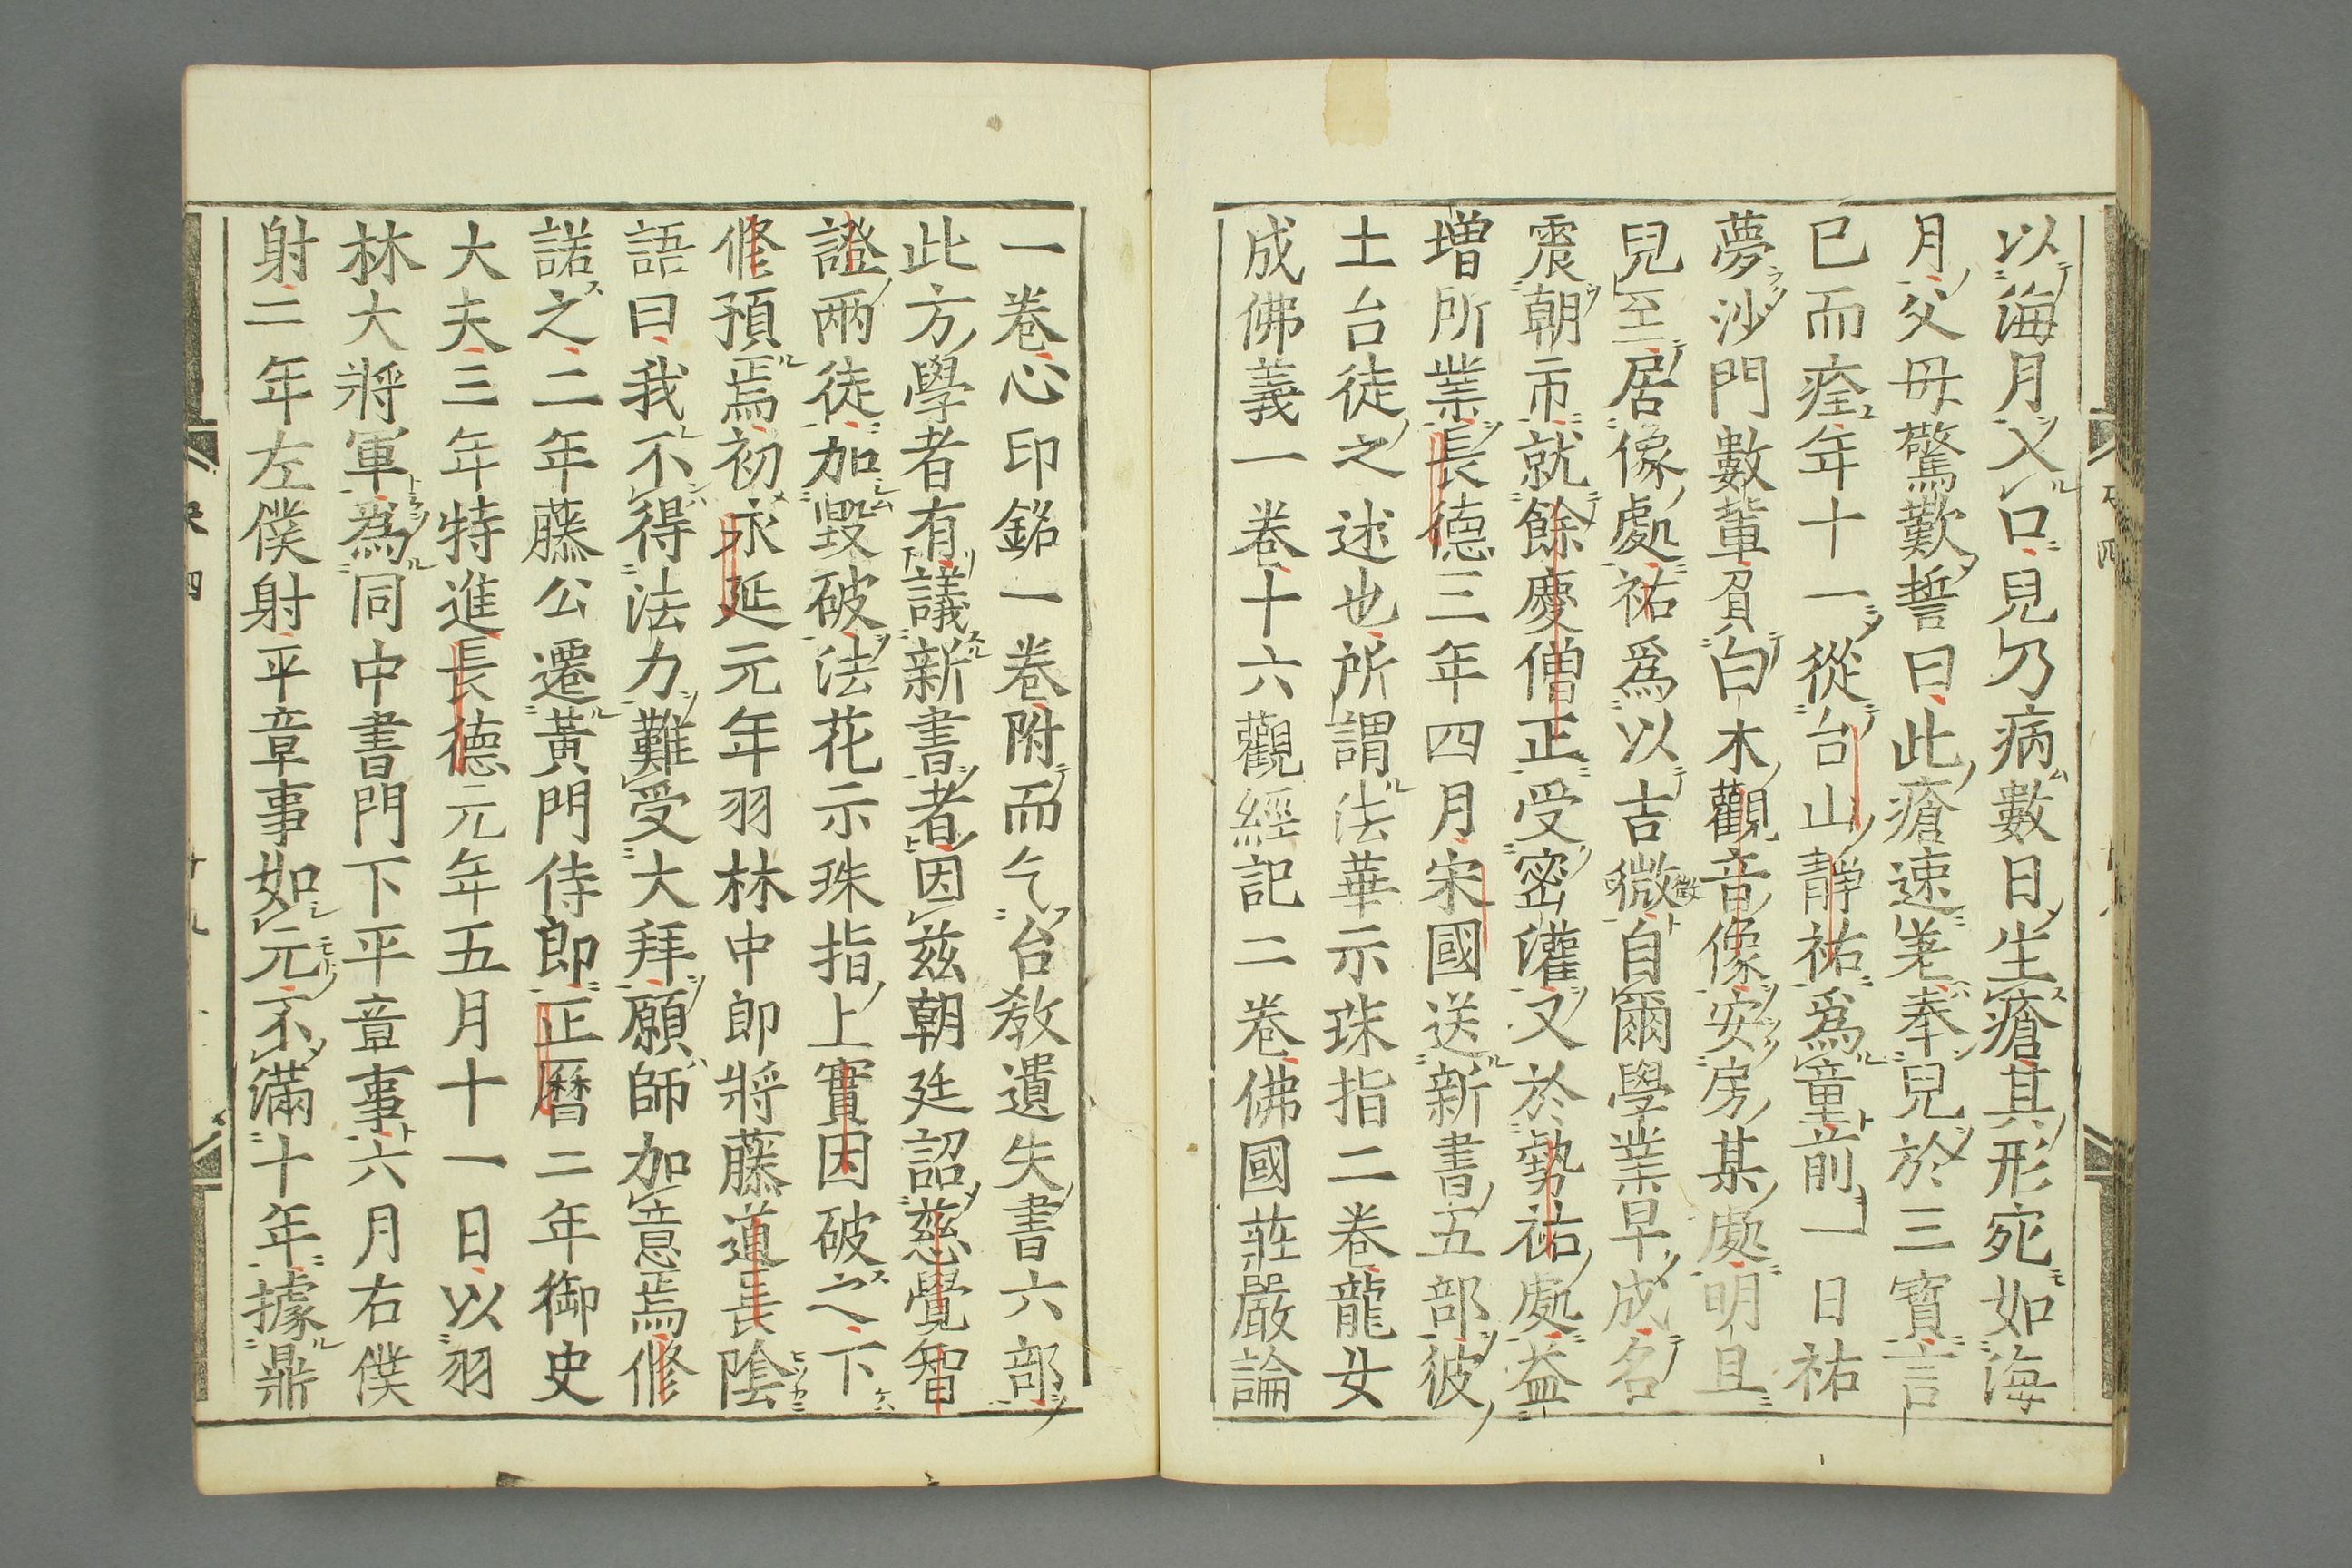 以海月入口見乃病數日生瘡其形宛如海
月父母驚歎誓曰此瘡速差奉兒於三寶言
已而痊年十一從台山靜祐爲童前一日祐
夢沙門數輩負白木觀音像安房某處明且
兒至居像處祐爲以吉微自爾學業早成名
震朝市就餘慶僧正受密灌又於勢祐處益
增所業長德三年四月宋國送新書五部彼
土台徒之述也所謂法華示珠指二卷龍女
成佛義一卷十六觀經記二卷佛國莊嚴論
一卷心印銘一卷附而乞台教遺失書六部
此方學者有議新書者因茲朝廷詔慈覺智
證兩徒加毀破法花示珠指上實因破之下
修預焉初永延元年羽林中郎將藤道長陰
語曰我不得法力難受大拜願師加意焉修
諾之二年藤公遷黃門侍郎正曆二年御史
大夫三年特進長德元年五月十一日以羽
林大將軍為同中書門下平章事六月右僕
射二年左僕射平章事如元不滿十年據鼎